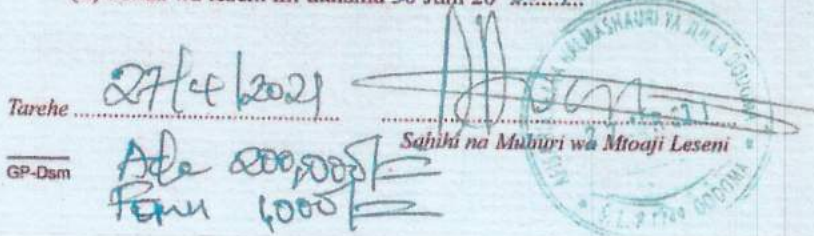 30 Juni 20
Tarehe 27/4/2021
Sahihi na Muhuri wa Mtoaji Leseni
GP-Dsm
Ada 200,000/=
Fomu 1,000/=
HALMASHAURI YA JIJI LA DODOMA
DODOMA